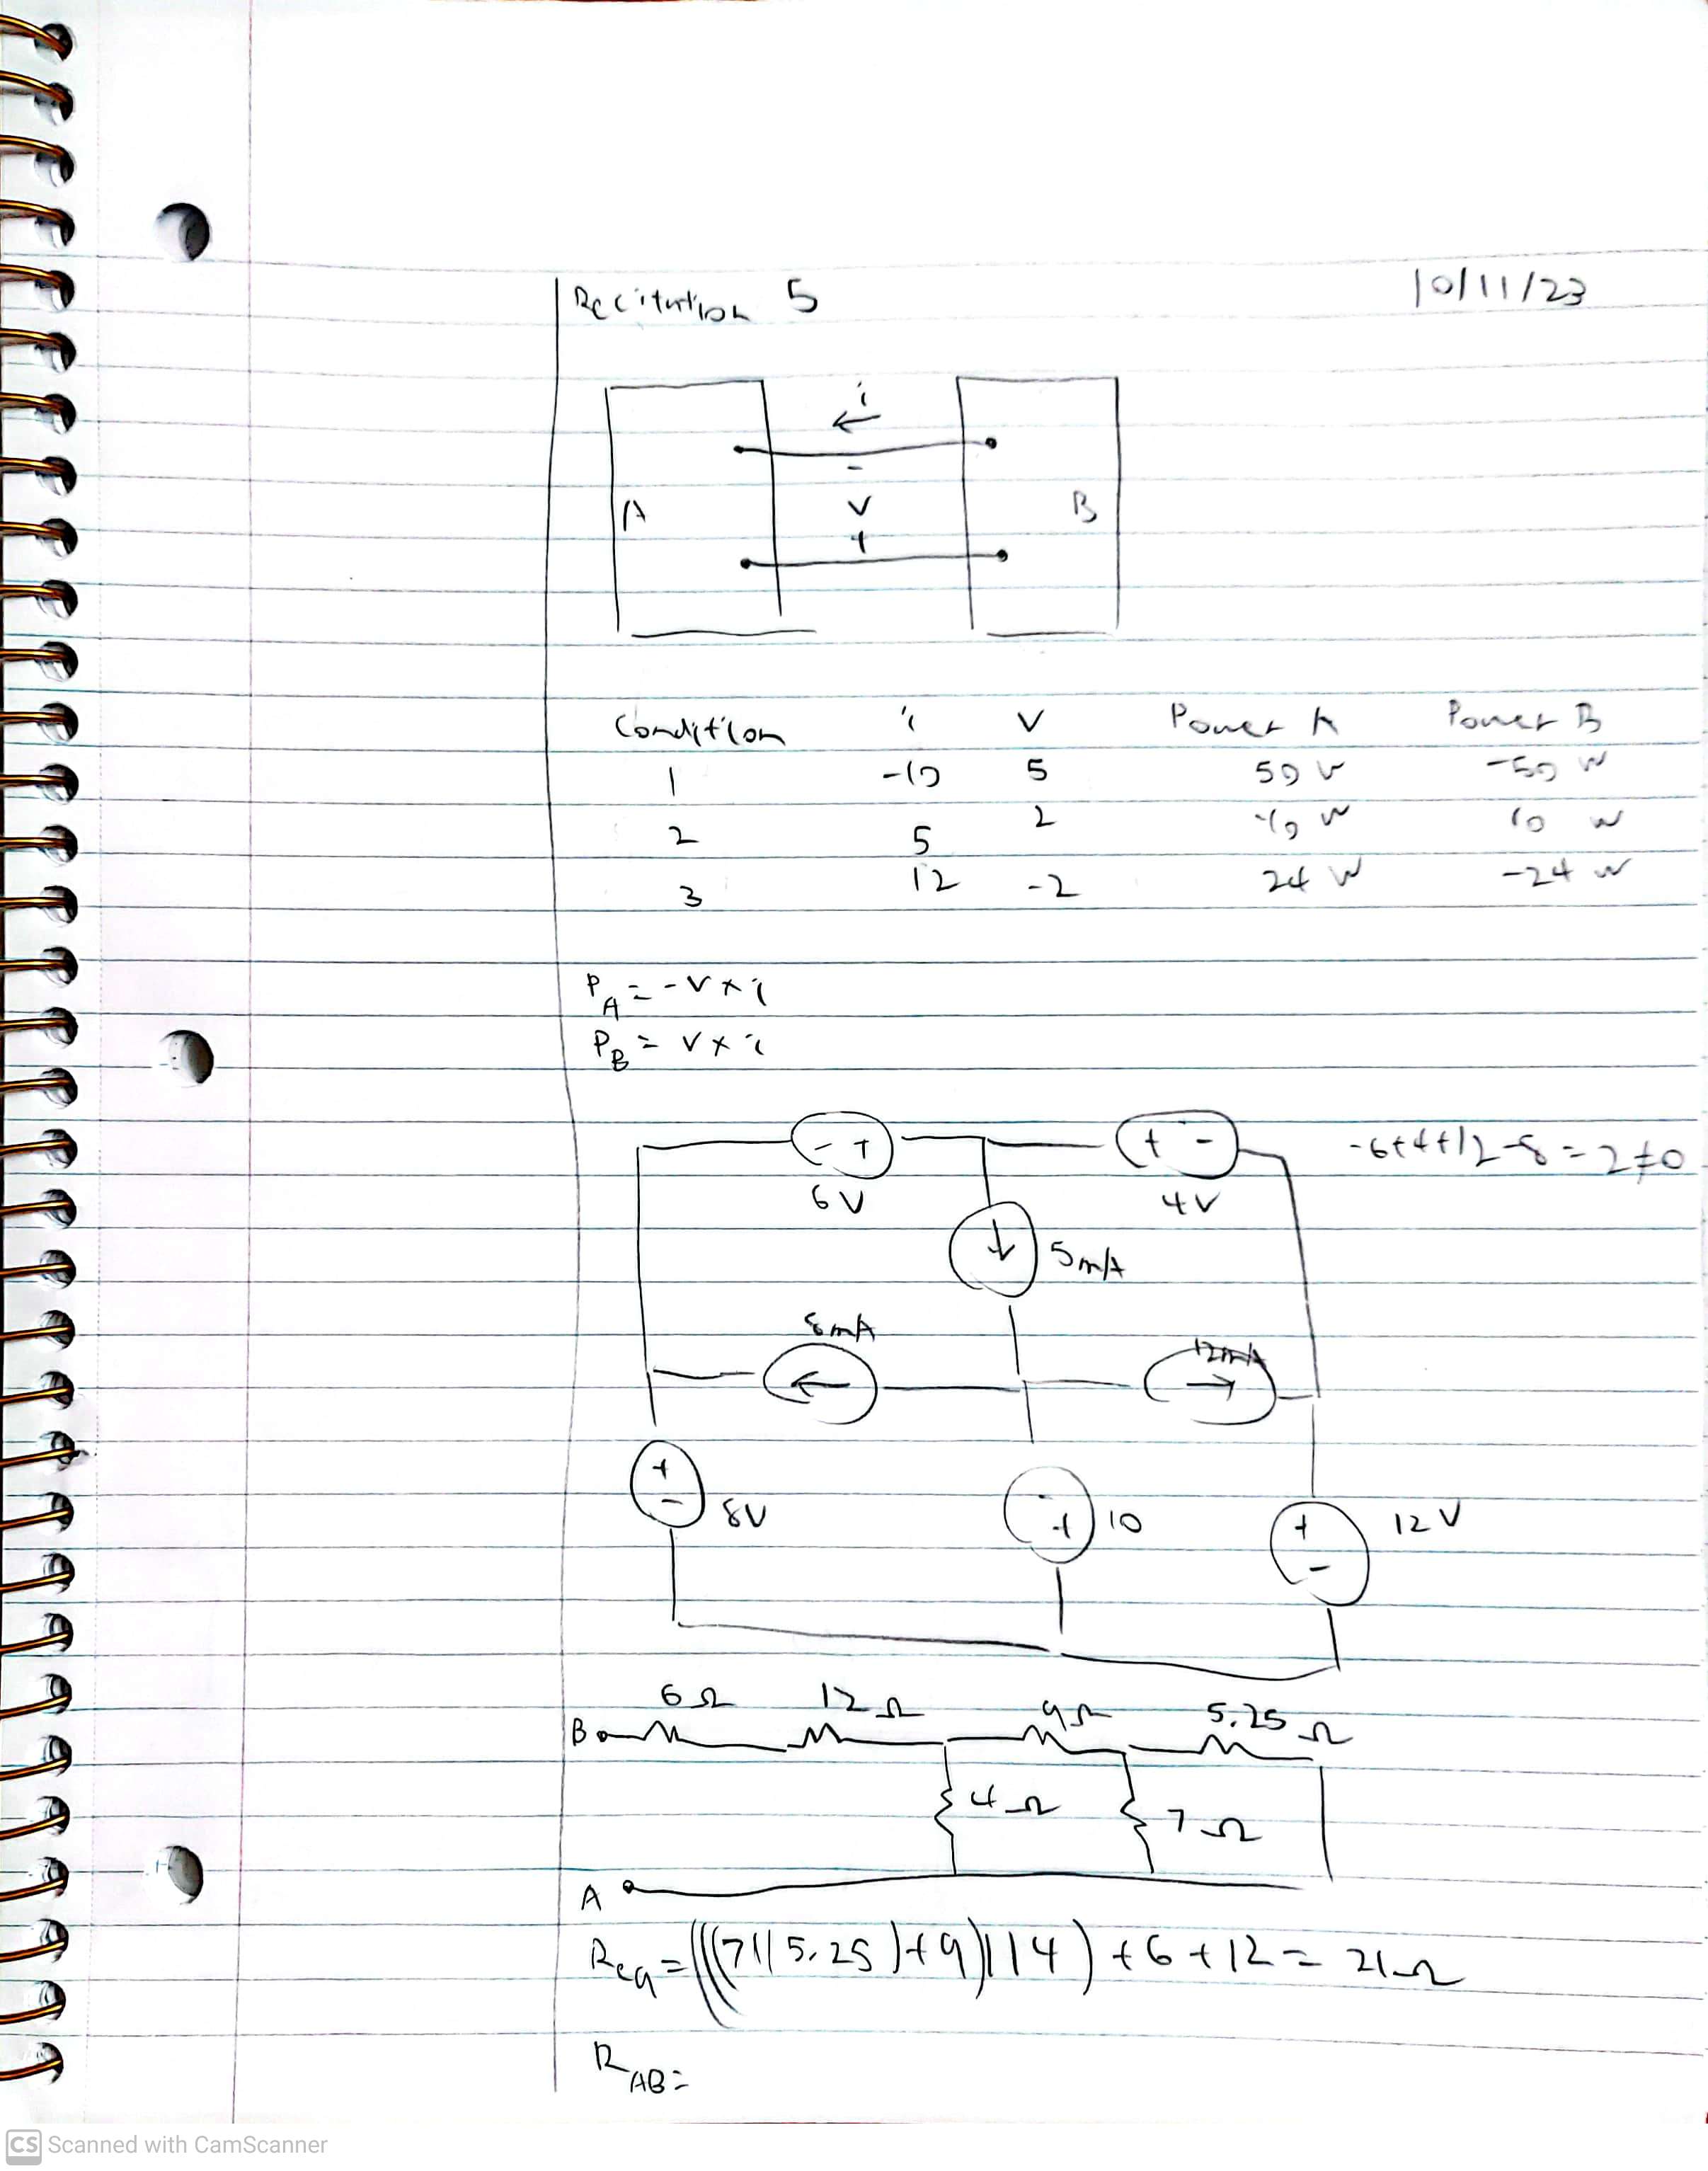 Recitation 5 10/11/23
i
-
A V B
+
Condition i V Power A Power B
1 -10 5 50 W -50 W
2 5 2 -10 W 10 W
3 12 -2 24 W -24 W
P_A = -V x i
P_B = V x i
- + + - -6+4+12-8=2≠0
6V 4V
↓ 5mA
8mA 12mA
← →
+ - 8V - + 10 + - 12 V
6Ω 12Ω 9Ω 5.25 Ω
B
4Ω 7Ω
A
Req = (((7||5.25)+9)||4) +6+12= 21Ω
R_AB=
CS Scanned with CamScanner